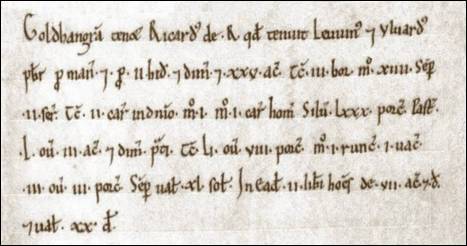 Goldhangrā tenet Ricard᷒ de · R · qđ tenuit Leuuin᷒ ⁊ Vluuard᷒
p̄br̄ ꝓ man̄ · ⁊ · ꝓ · ii · hiđ · ⁊ dim̄ · ⁊ · xxv · ac̄ · Tc̄ · iii · bor · m̊ · xiiii · Sēp
· ii · ser · Tc̄ · ii · car in dn̄io · m̊ · i · m̊ · i · car hom̄ · Silū · lxxx · porc̄ · Past̄ ·
l · oū · iii · ac̄ · ⁊ dim̄ · p̄ti · Tc̄ · li · oū · viii · porc̄ · m̊ · i · runc̄ · i · uac̄
· iii · oū · iii · porc̄ · Sēp uał · xl · soł · In eađ · ii · libi hōes · de · vii · ac̄ · ⁊ đ ·
⁊ uał · xx · đ ·